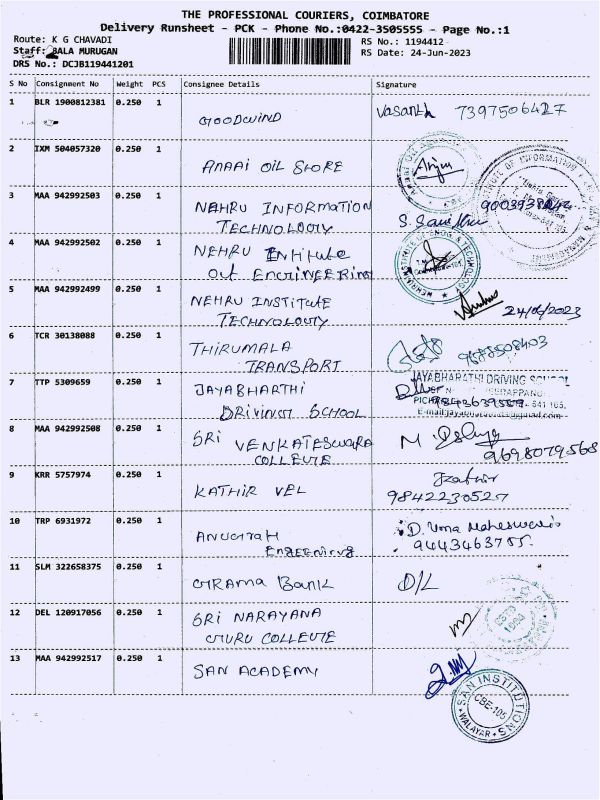 THE PROFESSIONAL COURIERS, COIMBATORE
Delivery Runsheet - PCK - Phone No.:0422-3505555 - Page No.:1
Route: K G CHAVADI
Staff: BALA MURUGAN
DRS No.: DCJB119441201
RS No.: 1194412
RS Date: 24-Jun-2023
S No Consignment No Weight PCS Consignee Details Signature
1 BLR 1900812381 0.250 1 GOODWIND Vasanth 7397506427
2 IXM 504057320 0.250 1 ANAAI OIL STORE
3 MAA 942992503 0.250 1 NEHRU INFORMATION
TECHNOLOGY
4 MAA 942992502 0.250 1 NEHRU Entitute
OUT ENGINEERING
5 MAA 942992499 0.250 1 NEHRU INSTITUTE
TECHNOLOGY 24/06/2023
6 TCR 30138088 0.250 1 THIRUMALA
TRANSPORT
7 TTP 5309659 0.250 1 JAYABHARTHI
DRIVING SCHOOL
JAYABHARATHI DRIVING SCHOOL
8 MAA 942992508 0.250 1 SRI VENKATESWARA
COLLEGE 9698079568
9 KRR 5757974 0.250 1 KATHIR VEL
9842230527
10 TRP 6931972 0.250 1 ANUGRAH
Engeenirng
D. Uma Maheswari
9443463755
11 SLM 322658375 0.250 1 GRAMA BANK O/L
12 DEL 120917056 0.250 1 SRI NARAYANA
GURU COLLEGE
13 MAA 942992517 0.250 1 SAN ACADEMY
SAN INSTITUTIONS
CBE-105
WALAYAR